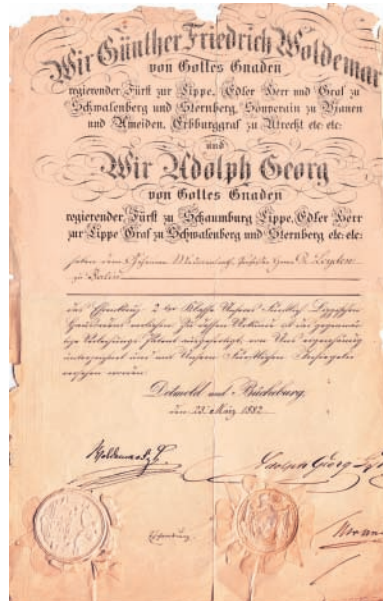 Wir Günther Friedrich Woldemar
von Gottes Gnaden
regierender Fürst zur Lippe, Edler Herr und Graf zu
Schwalenberg und Sternberg, Souverain zu Vianen
und Ameiden, Erbburggraf zu Utrecht etc: etc:
und
Wir Adolph Georg
von Gottes Gnaden
regierender Fürst zu Schaumburg Lippe, Edler Herr
zur Lippe Graf zu Schwalenberg und Sternberg etc: etc:
haben dem Geheimen Medicinalrath Professor Herrn Dr. Leyden
zu Berlin
das Ehrenkreuz 2ter Klasse Unseres Fürstlich Lippischen
Gesammthauses verliehen. Zu dessen Urkunde ist das gegenwär-
tige Verleihungs Patent ausgefertigt, von Uns eigenhändig
unterzeichnet und mit Unserm Fürstlichen Insiegel
versehen worden.
Detmold und Bückeburg,
den 23. März 1882
Woldemar
Adolph Georg